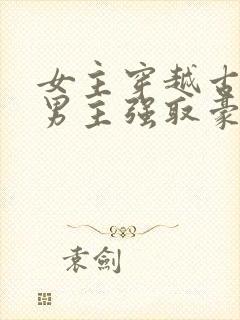 女主穿越古
男主强取豪
袁劍